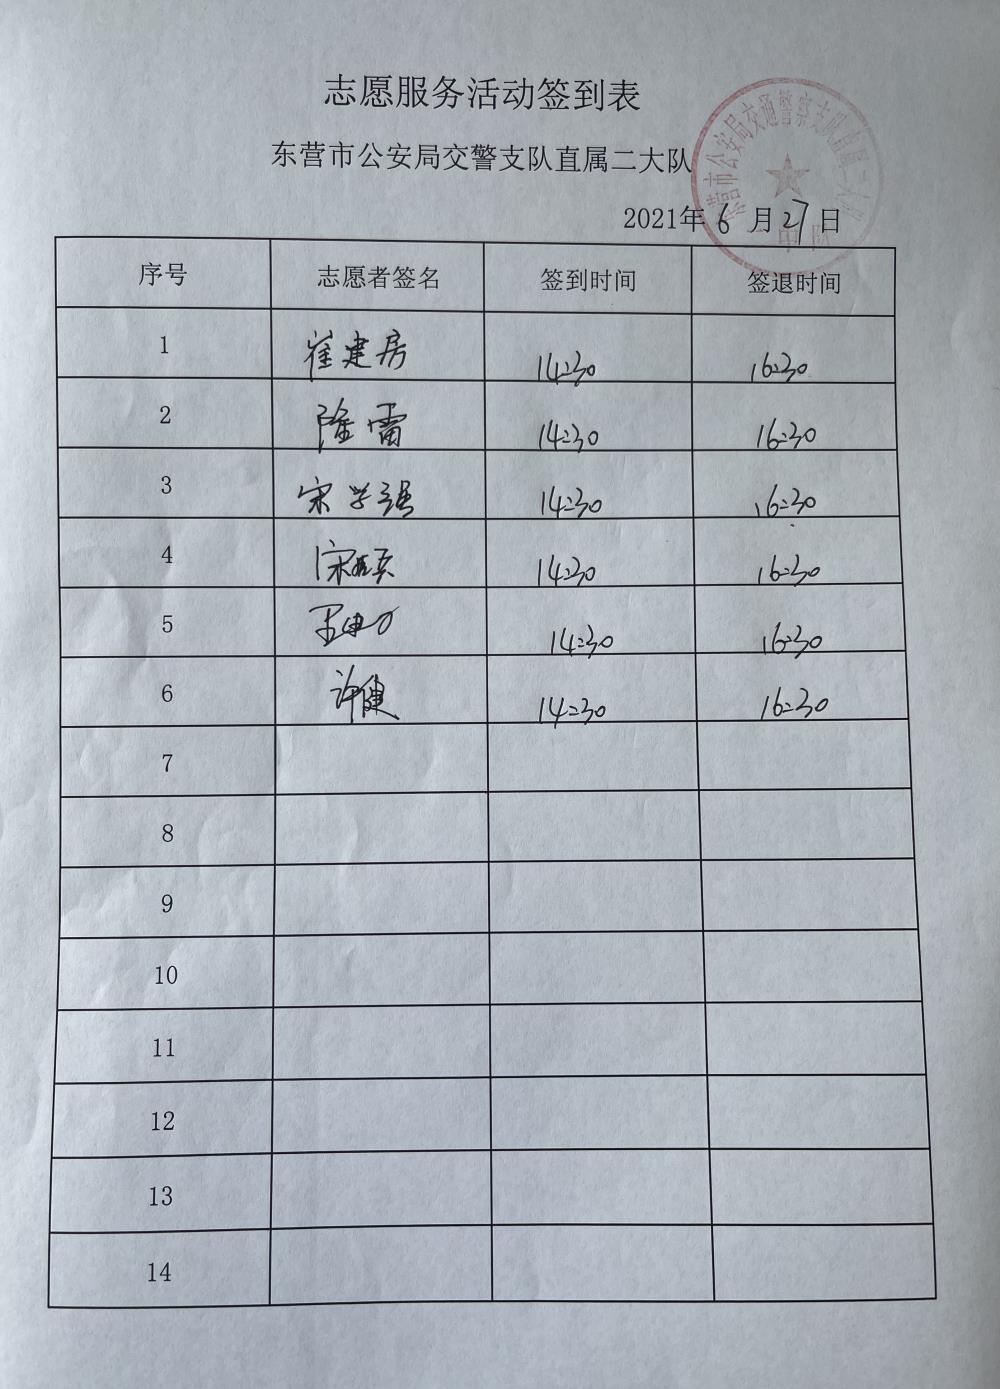 志愿服务活动签到表
东营市公安局交警支队直属二大队
东营市公安局交通警察支队直属二大队
2021年6月27日
中队
序号 志愿者签名 签到时间 签退时间
1 崔建房 14:30 16:30
2 隆雷 14:30 16:30
3 宋学强 14:30 16:30
4 14:30 16:30
5 14:30 16:30
6 许健 14:30 16:30
7
8
9
10
11
12
13
14